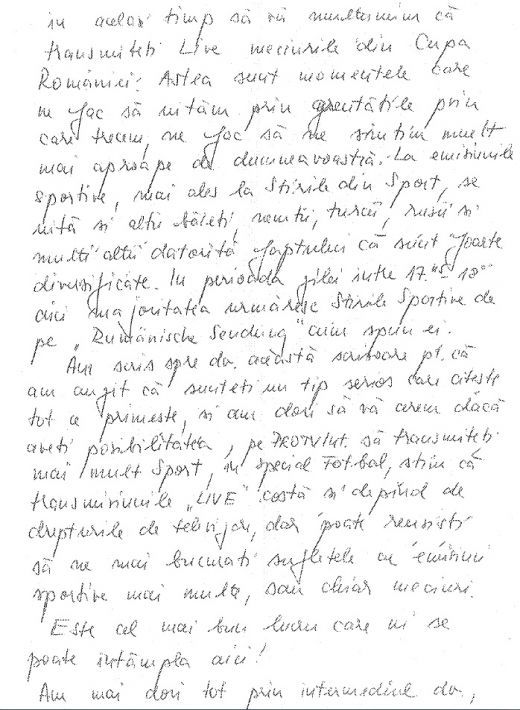 in acelasi timp să vă multumim că
transmiteti Live meciurile din Cupa
României! Astea sunt momentele care
ne fac să uităm prin greutătile prin
care trecem, ne fac să ne simtim mult
mai aproape de dumneavoastră. La emisiunile
sportive, mai ales la Stirile din Sport, se
uită si altii băieti, nemtii, turcii, rusii si
multi altii datorită faptului că sunt foarte
diversificate. In perioada zilei intre 17.45-18°°
aici majoritatea urmăresc Stirile Sportive de
pe „Rumänische Sendung" cum spun ei.
Am scris spre dv. această scrisoare pt. că
am auzit că sunteti un tip serios care citeste
tot ce primeste, si am dori să vă cerem dacă
aveti posibilitatea, pe PROTVInt. să transmiteti
mai mult Sport, in special Fotbal, stim că
transmisiunile „LIVE" costă si depind de
drepturile de televizare, dar poate reusiti
să ne mai bucurati sufletele cu emisiuni
sportive mai multe, sau chiar meciuri.
Este cel mai bun lucru care ni se
poate intâmpla aici!
Am mai dori tot prin intermediul dv,